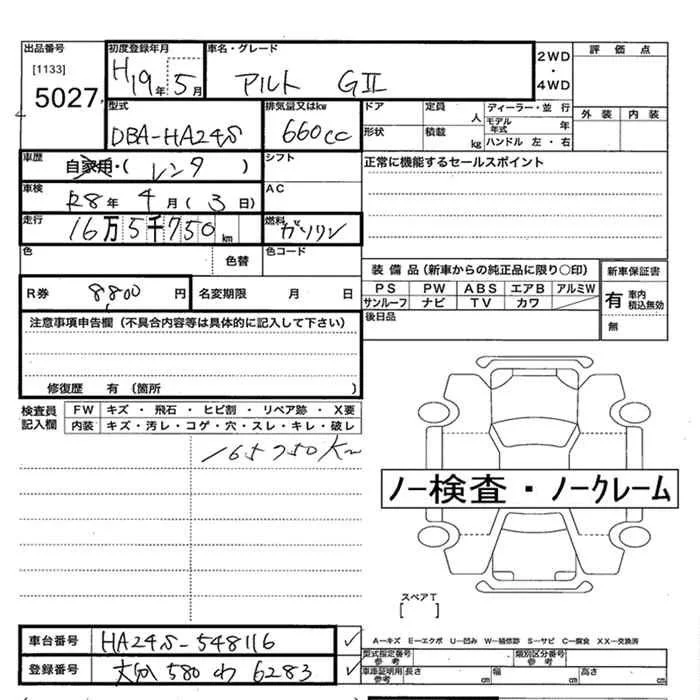 出品番号 初度登録年月 車名・グレード 2WD・4WD 評価点
[1133] H19年 5月 アルト GⅡ
5027
型式 排気量又はkw ドア 定員 人 ディーラー・並行 外装 内装
DBA-HA24S 660cc 形状 積載 kg モデル年式 年
ハンドル 左・右
車歴 自家用・(レンタ) シフト 正常に機能するセールスポイント
車検 R8年 4月(3日) AC
走行 16万5千750km 燃料 ガソリン
色 色替 色コード
装備品(新車からの純正品に限り○印) 新車保証書
R券 8,800円 名変期限 月 日 PS PW ABS エアB アルミW 有 車内積込無効
サンルーフ ナビ TV カワ
注意事項申告欄(不具合内容等は具体的に記入して下さい) 後日品 無
修復歴 有(箇所 )
検査員記入欄 FW キズ・飛石・ヒビ割・リペア跡・X要
内装 キズ・汚レ・コゲ・穴・スレ・キレ・破レ
165750Km
ノー検査・ノークレーム
スペアT
[ ]
車台番号 HA24S-548116 ✓
A-キズ E-エクボ U-凹み W-補修跡 S-サビ C-腐食 XX-交換済
型式指定番号 参考 類別区分番号 参考
登録番号 大分 580 わ 6283 ✓
車庫証明用 参考 長さ cm 幅 cm 高さ cm